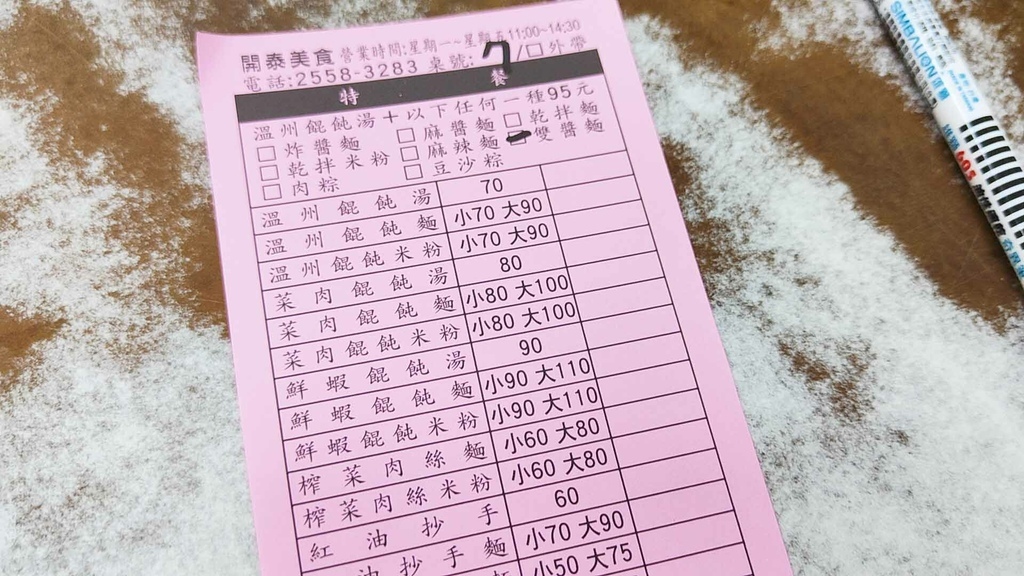 開泰美食 營業時間:星期一~星期五11:00~14:30
電話:2558-3283 桌號: 7 /□外帶
特餐
溫州餛飩湯+以下任何一種95元
□炸醬麵 □麻醬麵 □乾拌麵
□乾拌米粉 □麻辣麵 □雙醬麵
□肉粽 □豆沙粽
溫州餛飩湯 70
溫州餛飩麵 小70 大90
溫州餛飩米粉 小70 大90
菜肉餛飩湯 80
菜肉餛飩麵 小80 大100
菜肉餛飩米粉 小80 大100
鮮蝦餛飩湯 90
鮮蝦餛飩麵 小90 大110
鮮蝦餛飩米粉 小90 大110
榨菜肉絲麵 小60 大80
榨菜肉絲米粉 小60 大80
紅油抄手 60
油抄手麵 小70 大90
小50 大75
SIMBALION